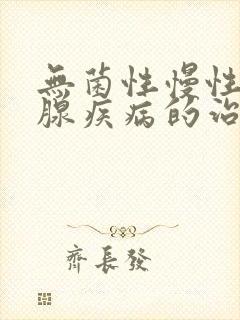 無菌性慢性
腺疾病的治
齊長發